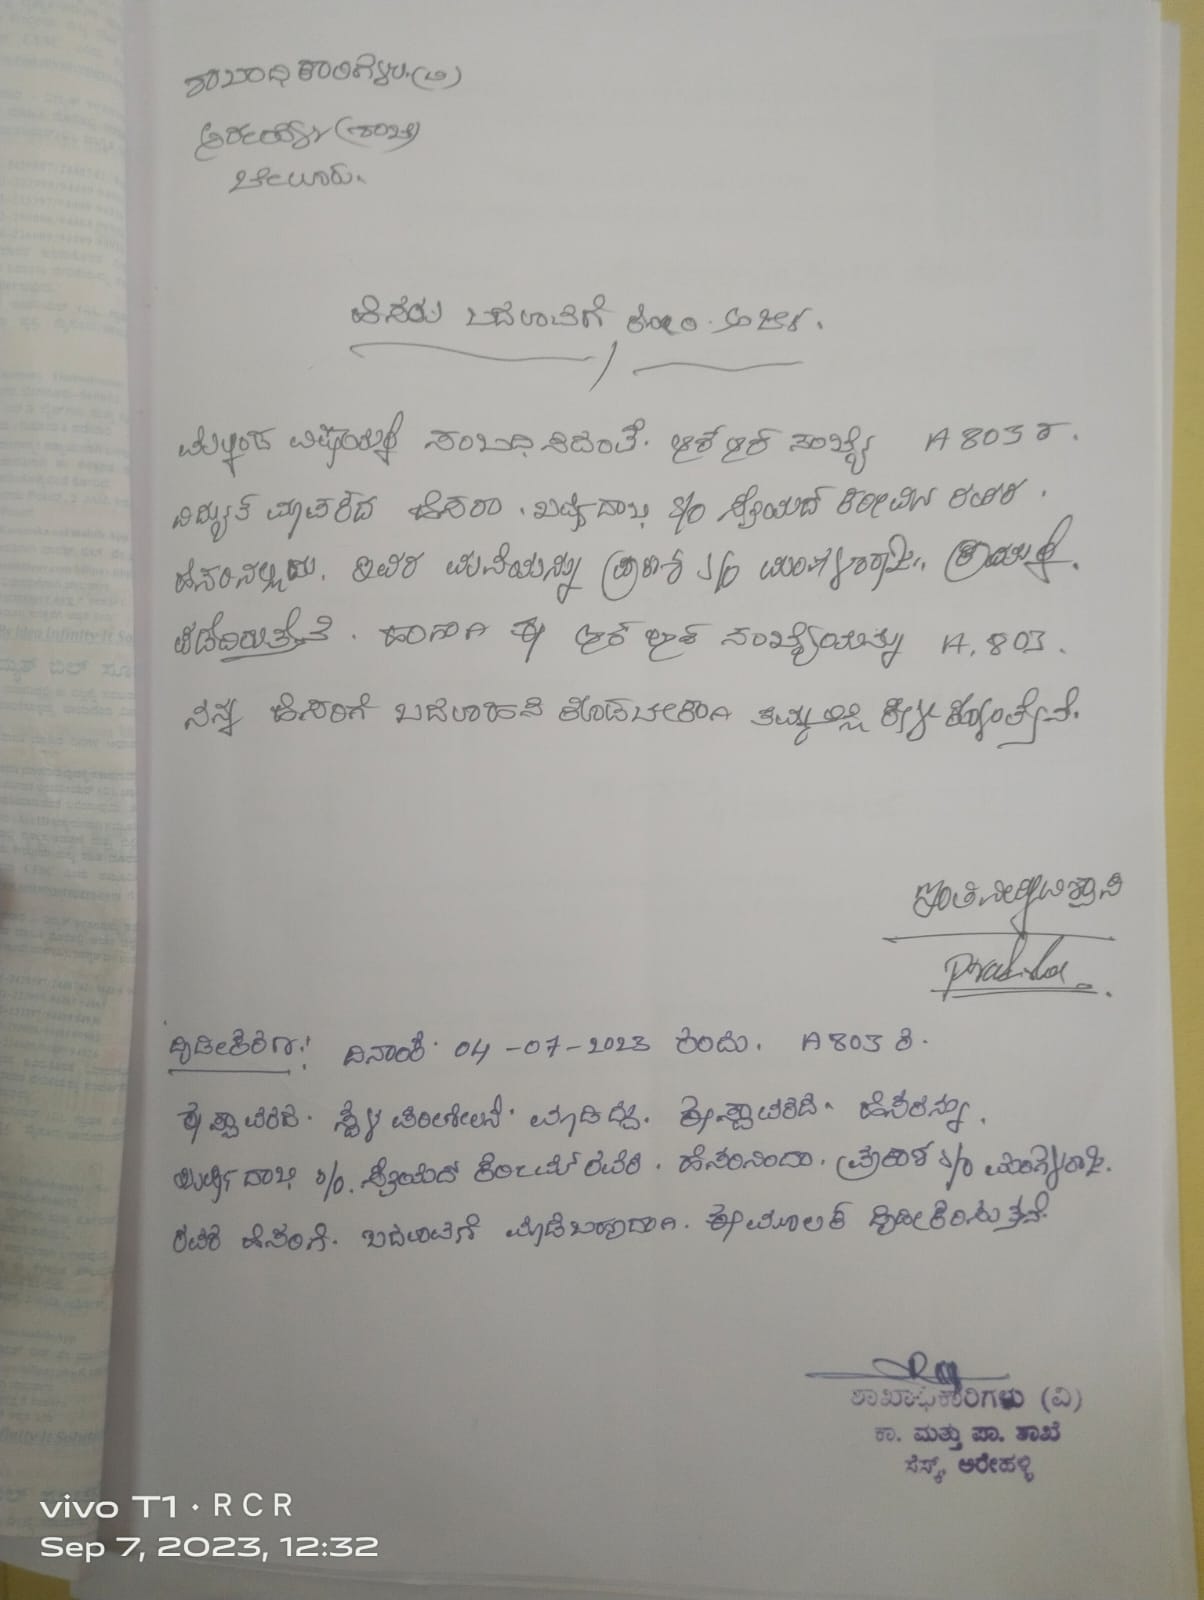 ಶಾಖಾಧಿಕಾರಿಗಳು (ವಿ)
ಅರೇಹಳ್ಳಿ (ಶಾಖೆ)
ಬೇಲೂರು.
ಹೆಸರು ಬದಲಾವಣೆಗೆ ಕೋರಿ ಅರ್ಜಿ.
ಮೇಲ್ಕಂಡ ವಿಷಯಕ್ಕೆ ಸಂಬಧಿಸಿದಂತೆ. ಆರ್ ಆರ್ ಸಂಖ್ಯೆ A 803 ರ.
ವಿದ್ಯುತ್ ಮಾಪಕದ ಹೆಸರು. S/o ಸೈಯದ್ ಕರೀಮ್ ರವರ.
ಹೆಸರಿನಲ್ಲಿದ್ದು. ಇವರ ಮನೆಯನ್ನು ಪ್ರಕಾಶ S/o ಕ್ರಯಕ್ಕೆ.
ಪಡೆದಿರುತ್ತೇನೆ. ಹಾಗಾಗಿ ಈ ಆರ್ ಆರ್ ಸಂಖ್ಯೆಯನ್ನು A. 803.
ನನ್ನ ಹೆಸರಿಗೆ ಬದಲಾಹಿಸಿ ಕೊಡಬೇಕಾಗಿ ತಮ್ಮಲ್ಲಿ ಕೇಳಿಕೊಳ್ಳುತ್ತೇನೆ.
ಇಂತಿ ನಿಮ್ಮ ವಿಶ್ವಾಸಿ
Prakasha
ದೃಢೀಕರಣ:! ದಿನಾಂಕ 04-07-2023 ರಂದು. A 803 ಕೆ.
ಈ ಸ್ಥಾವರದ. ಸ್ಥಳ ಪರಿಶೀಲನೆ ಮಾಡಿದ್ದು. ಈ ಸ್ಥಾವರದ ಹೆಸರನ್ನು.
S/o. ಸೈಯದ್ ಕರೀಮ್ ರವರ. ಹೆಸರಿನಿಂದಾ. ಪ್ರಕಾಶ S/o
ರವರ ಹೆಸರಿಗೆ. ಬದಲಾವಣೆ ಮಾಡಬಹುದಾಗಿ. ಈ ಮೂಲಕ ದೃಢೀಕರಿಸುತ್ತೇನೆ
ಶಾಖಾಧಿಕಾರಿಗಳು (ವಿ)
ಕಾ. ಮತ್ತು ಪಾ. ಶಾಖೆ
ಸೆಸ್ಕ್, ಅರೇಹಳ್ಳಿ
vivo T1 · R C R
Sep 7, 2023, 12:32